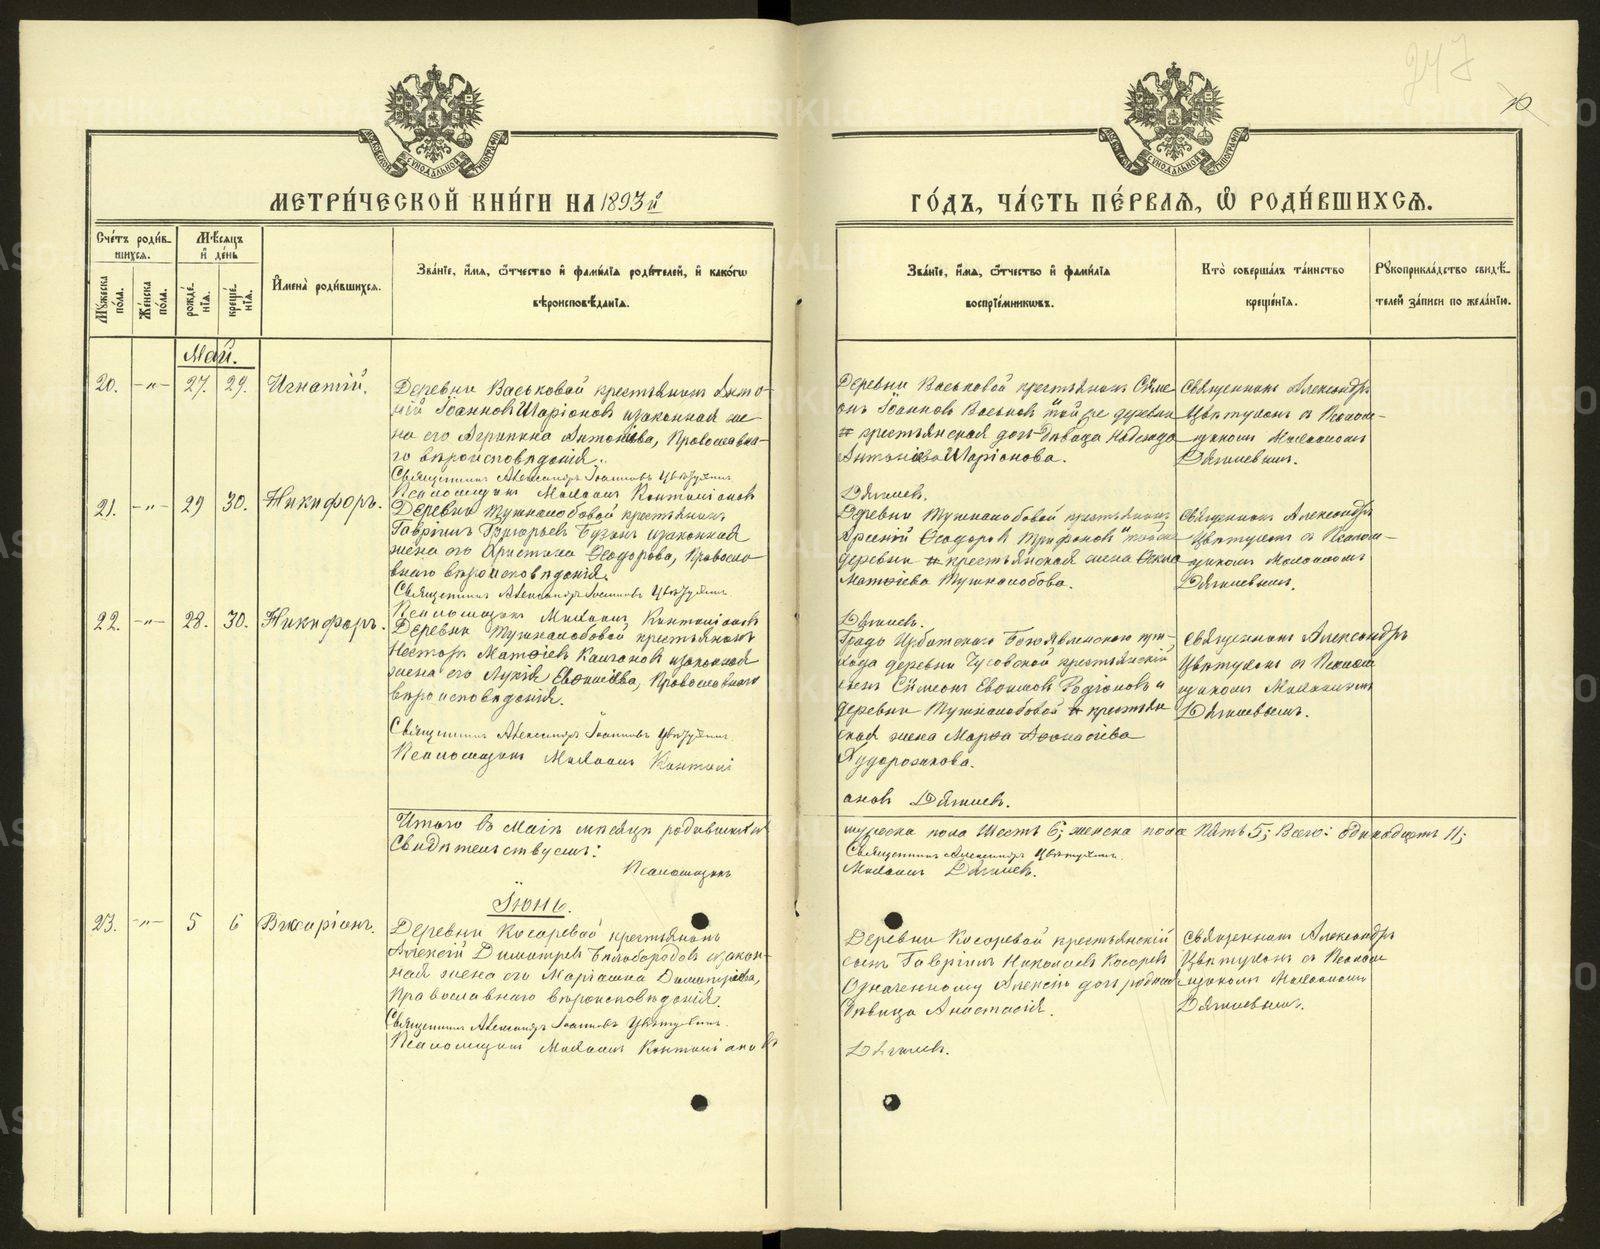 247
10
МЕТРИ́ЧЕСКОЙ КНИ́ГИ НА 1893й
ГО́ДЪ, ЧА́СТЬ ПЕ́РВАЯ, Ѡ РОДИ́ВШИХСЯ.
Сче́тъ роди́в-
шихся.
Мѣ́сяцъ
и де́нь
Му́жеска
по́ла.
Же́нска
по́ла.
рожде́-
нія.
креще́-
нія.
Имена̀ роди́вшихся.
Зва́ніе, и́мя, ѻ́тчество и фами́лія роди́телей, и како́гѡ
вѣроисповѣ́данія.
Зва́ніе, и́мя, ѻ́тчество и фами́лія
воспріе́мниковъ.
Кто̀ соверша́лъ та́инство
креще́нія.
Рукоприкла́дство свидѣ́-
телей за́писи по жела́нію.
Май.
20. -"- 27. 29. Игнатій.
Деревни Васьковой крестьянинъ Анто-
ній Іоанновъ Иларіоновъ и законная же-
на его Агрипина Антоніева, Православна-
го вѣроисповѣданія.
Священникъ Александръ Іоанновъ Цвѣтухинъ
Псаломщикъ Михаилъ Кантоліановъ
Деревни Васьковой крестьянинъ Симе-
онъ Іоанновъ Васьковъ той же деревни
и крестьянская дочь дѣвица Надежда
Антоніева Иларіонова.
Дягилевъ.
Священникъ Александръ
Цвѣтухинъ съ Псалом-
щикомъ Михаиломъ
Дягилевымъ.
21. -"- 29 30. Никифоръ.
Деревни Тушналобовой крестьянинъ
Гавріилъ Григорьевъ и законная
жена его Христина Ѳеодорова, Правосла-
внаго вѣроисповѣданія.
Священникъ Александръ Іоанновъ Цвѣтухинъ
Псаломщикъ Михаилъ Кантоліановъ
Деревни Тушналобовой крестьянинъ
Арсеній Ѳеодоровъ Трифоновъ той же
деревни и крестьянская жена Ѳекла
Матѳіева Тушналобова.
Дягилевъ.
Священникъ Александръ
Цвѣтухинъ съ Псалом-
щикомъ Михаиломъ
Дягилевымъ.
22. -"- 28. 30. Никифоръ.
Деревни Тушналобовой крестьянинъ
Несторъ Матѳіевъ и законная
жена его Лукія Евѳиміева, Православнаго
вѣроисповѣданія.
Священникъ Александръ Іоанновъ Цвѣтухинъ.
Псаломщикъ Михаилъ Кантолі
Града Ирбитскаго Богоявленскаго при-
хода деревни крестьянскій
сынъ Симеонъ Евѳимовъ Родіоновъ и
деревни Тушналобовой и крестьян
ская жена Марѳа Аѳонасіева
Худорожкова.
ановъ Дягилевъ.
Священникъ Александръ
Цвѣтухинъ съ Псалом
щикомъ Михаиломъ
Дягилевымъ.
Итого въ Маіѣ мѣсяцѣ родившихся
мужеска пола Шесть 6; женска пола Пять 5; Всего: Одинадцать 11;
Свидѣтельствуемъ:
Священникъ Александръ Цвѣтухинъ.
Псаломщикъ
Михаилъ Дягилевъ.
Іюнь.
23. -"- 5 6 Виссаріонъ.
Деревни Косаревой крестьянинъ
Алексій Димитріевъ Бѣлобородовъ и закон-
ная жена его Маріамна Димитріева,
Православнаго вѣроисповѣданія.
Священникъ Александръ Іоанновъ Цвѣтухинъ.
Псаломщикъ Михаилъ Кантоліановъ
Деревни Косаревой крестьянскій
сынъ Гавріилъ Николаевъ Косаревъ
Означенному Алексію дочь родная
дѣвица Анастасія.
Дягилевъ.
Священникъ Александръ
Цвѣтухинъ съ Псалом
щикомъ Михаиломъ
Дягилевымъ.